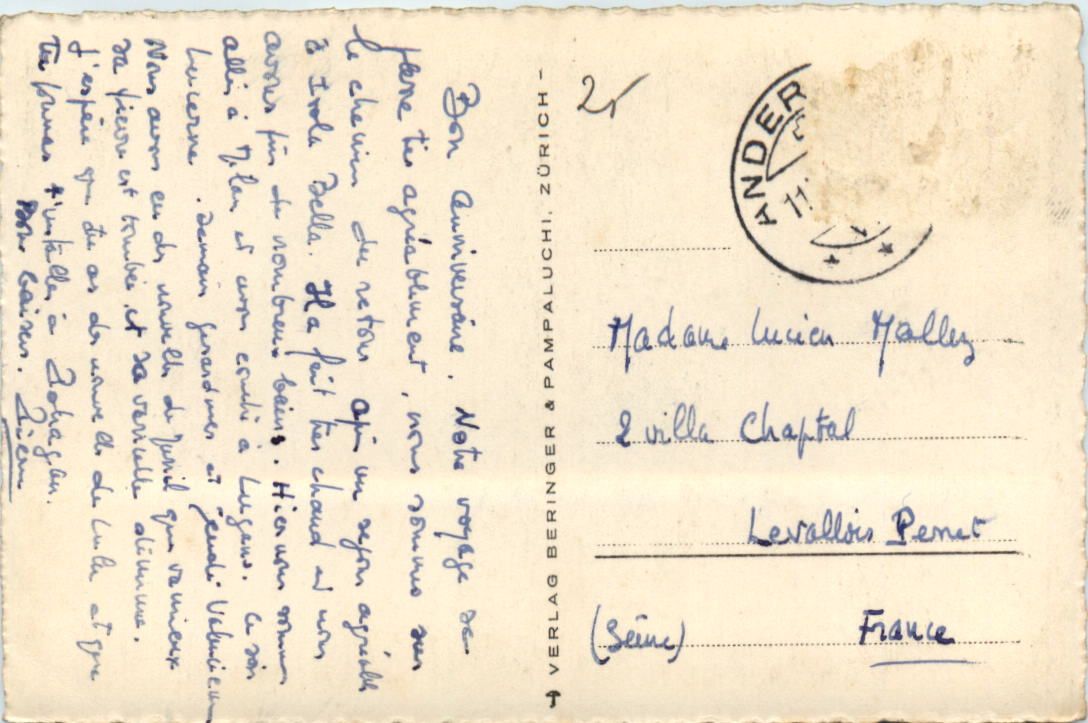 Bon anniversaire. Notre voyage se
passe très agréablement, nous sommes sur
le chemin du retour après un séjour agréable
à Isola Bella. Il a fait très chaud et nous
avons pris de nombreux bains. Hier nous sommes
allés à Milan et avons couché à Lugano. Ce soir
Lucerne. Demain gerardmer et jeudi Valenciennes
Nous avons eu des nouvelles de qui va mieux
sa fièvre est tombée et sa varicelle diminue.
J'espère que tu as des nouvelles de Lulu et que
tu pourras t'installer à
Bons baisers.
VERLAG BERINGER & PAMPALUCHI, ZÜRICH
ANDER
11.
Madame Lucien Mallez
2 villa Chaptal
Levallois Perret
(Seine) France